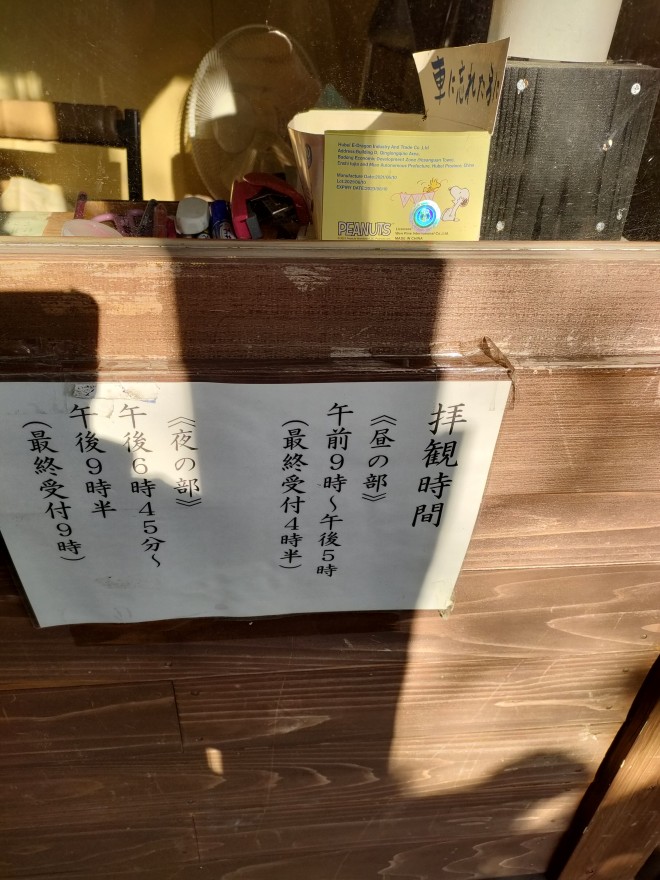 拝観時間
《昼の部》
午前9時～午後5時
(最終受付4時半)
《夜の部》
午後6時45分～
午後9時半
(最終受付9時)
車に忘れた事に
Address:Building D, Qinglongping Area,
PEANUTS
MADE IN CHINA